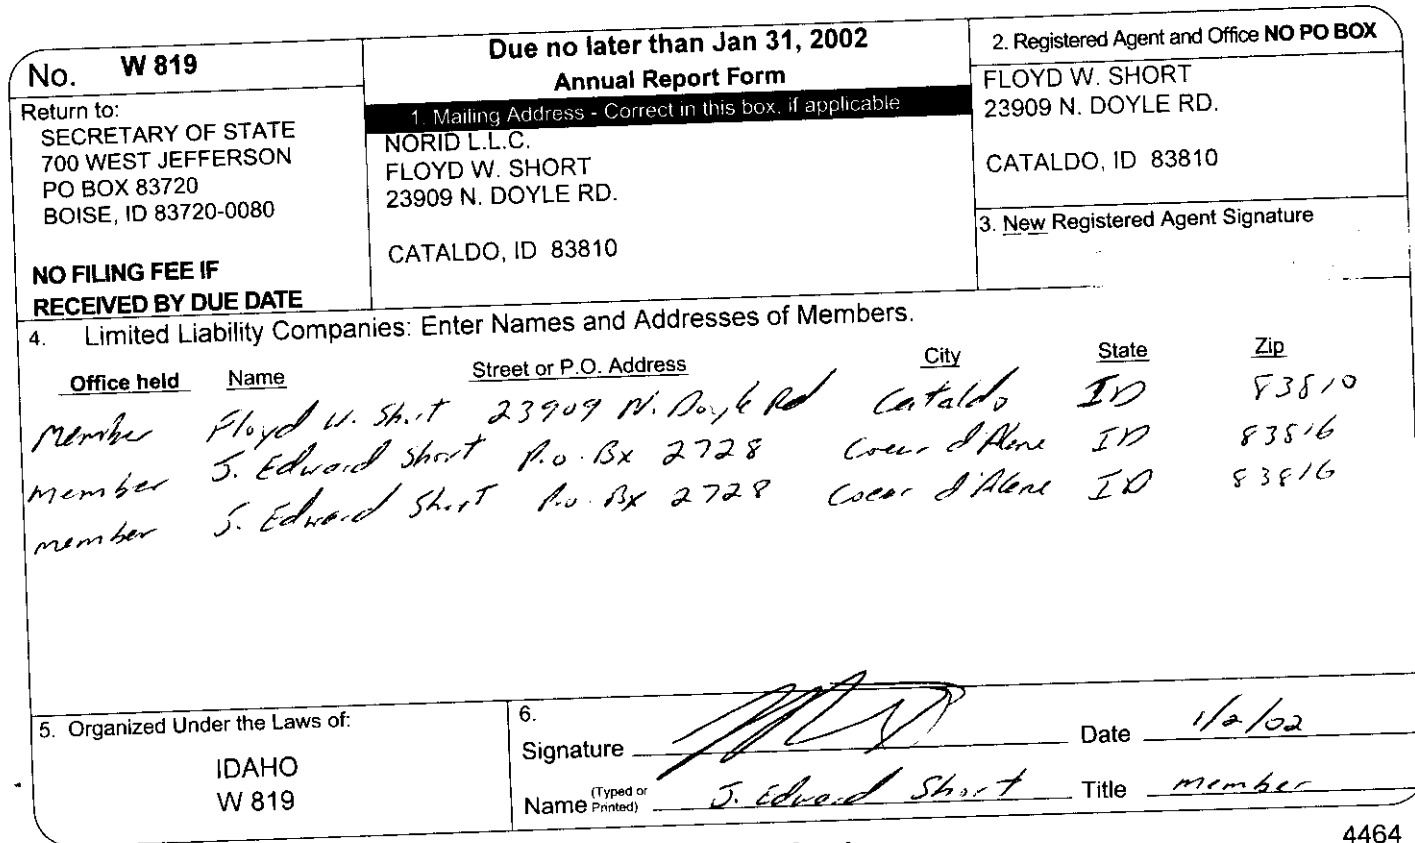 No. W 819
Return to:
SECRETARY OF STATE
700 WEST JEFFERSON
PO BOX 83720
BOISE, ID 83720-0080
NO FILING FEE IF
RECEIVED BY DUE DATE
Due no later than Jan 31, 2002
Annual Report Form
1. Mailing Address - Correct in this box, if applicable
NORID L.L.C.
FLOYD W. SHORT
23909 N. DOYLE RD.
CATALDO, ID 83810
2. Registered Agent and Office NO PO BOX
FLOYD W. SHORT
23909 N. DOYLE RD.
CATALDO, ID 83810
3. New Registered Agent Signature
4. Limited Liability Companies: Enter Names and Addresses of Members.
Office held Name Street or P.O. Address City State Zip
Member Floyd W. Short 23909 N. Doyle Rd Cataldo ID 83810
member J. Edward Short P.O. Bx 2728 Coeur d'Alene ID 83816
member J. Edward Short P.O. Bx 2728 Coeur d'Alene ID 83816
5. Organized Under the Laws of:
IDAHO
W 819
6.
Signature Date 1/2/02
Name (Typed or Printed) J. Edward Short Title member
4464